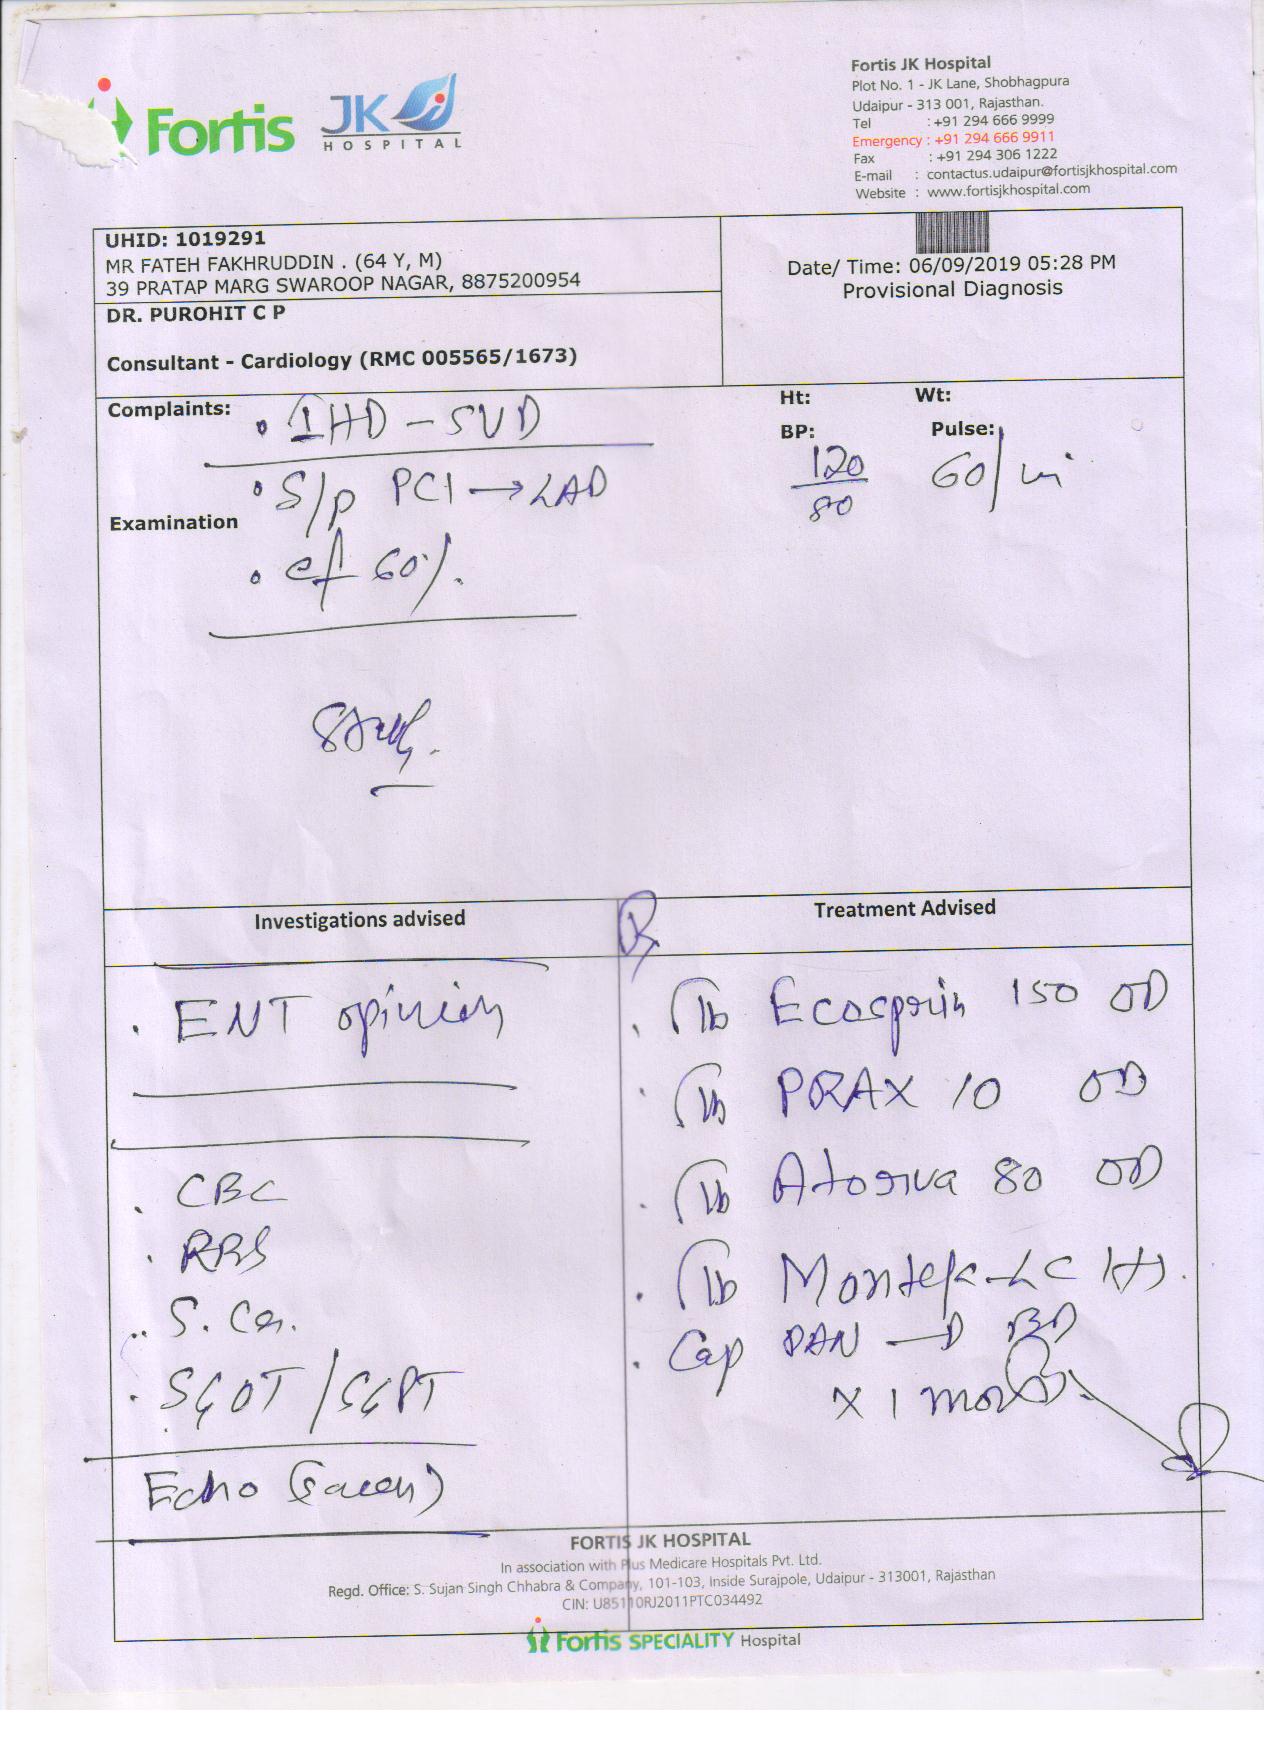 Fortis JK
HOSPITAL
Fortis JK Hospital
Plot No. 1 - JK Lane, Shobhagpura
Udaipur - 313 001, Rajasthan.
Tel : +91 294 666 9999
Emergency : +91 294 666 9911
Fax : +91 294 306 1222
E-mail : contactus.udaipur@fortisjkhospital.com
Website : www.fortisjkhospital.com
UHID: 1019291
MR FATEH FAKHRUDDIN . (64 Y, M)
39 PRATAP MARG SWAROOP NAGAR, 8875200954
DR. PUROHIT C P
Consultant - Cardiology (RMC 005565/1673)
Date/ Time: 06/09/2019 05:28 PM
Provisional Diagnosis
Complaints:
• IHD - SVD
• S/p PCI → LAD
Examination
• ef 60%.
Ht: Wt:
BP: Pulse:
120/80 60/mi
Investigations advised
. ENT opinion
. CBC
. RBS
.. S. Cr.
. SGOT / SGPT
Echo (screen)
Rx
Treatment Advised
. Tb Ecosprin 150 OD
. Tb PRAX 10 OD
. Tb Atorva 80 OD
. Tb Montek-LC
. Cap PAN - D BD
x 1 month
FORTIS JK HOSPITAL
In association with Plus Medicare Hospitals Pvt. Ltd.
Regd. Office: S. Sujan Singh Chhabra & Company, 101-103, Inside Surajpole, Udaipur - 313001, Rajasthan
CIN: U85110RJ2011PTC034492
Fortis SPECIALITY Hospital